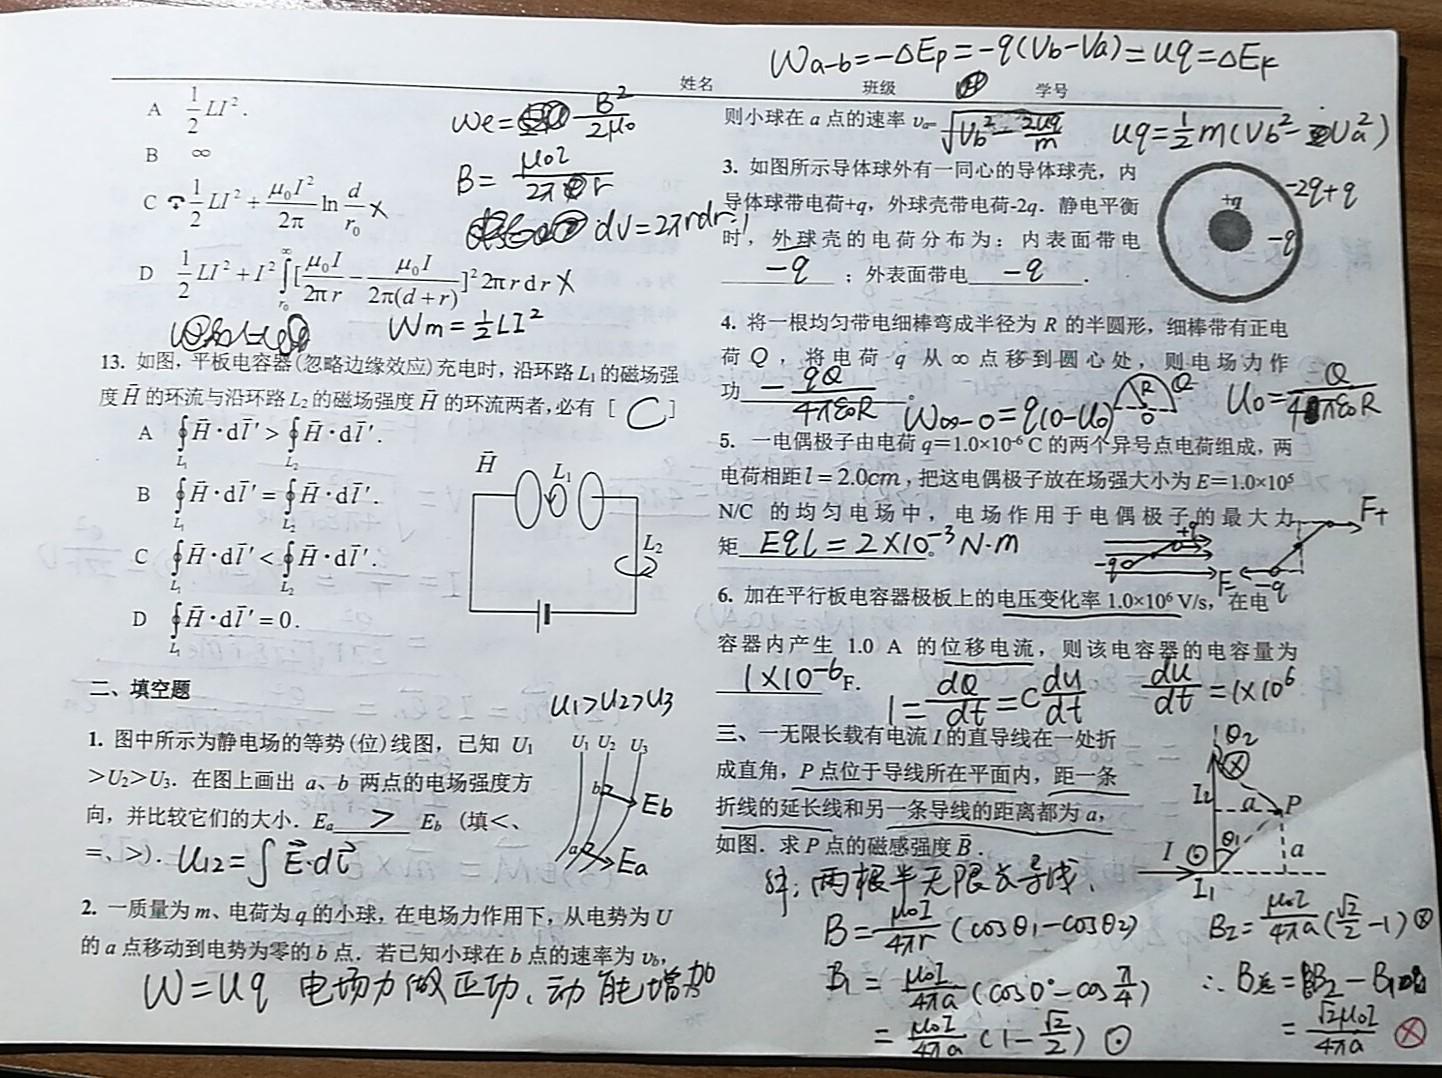 W a-b = -ΔEp = -q(Ub-Ua) = uq = ΔEk
姓名 班级 学号
A $\frac{1}{2}LI^2$.
B ∞
C $\frac{1}{2}LI^2+\frac{\mu_0I^2}{2\pi}\ln\frac{d}{r_0}$ ×
D $\frac{1}{2}LI^2+I^2\int_{r_0}^{\infty}[\frac{\mu_0I}{2\pi r}-\frac{\mu_0I}{2\pi(d+r)}]^2 2\pi r dr$ ×
We = $\frac{B^2}{2\mu_0}$
B = $\frac{\mu_0I}{2\pi r}$
dV = 2πrdr·1
Wm = ½LI²
13. 如图,平板电容器(忽略边缘效应)充电时,沿环路 L₁ 的磁场强
度 H̄ 的环流与沿环路 L₂ 的磁场强度 H̄ 的环流两者,必有 [ C ]
A ∮_{L₁} H̄·dl̄′ > ∮_{L₂} H̄·dl̄′.
B ∮_{L₁} H̄·dl̄′ = ∮_{L₂} H̄·dl̄′.
C ∮_{L₁} H̄·dl̄′ < ∮_{L₂} H̄·dl̄′.
D ∮_{L₁} H̄·dl̄′ = 0.
H̄ L₁
L₂
二、填空题
u₁>u₂>u₃
1. 图中所示为静电场的等势(位)线图,已知 U₁
>U₂>U₃. 在图上画出 a、b 两点的电场强度方
向,并比较它们的大小. Ea > Eb (填<、
=、>).
U₁ U₂ U₃
b Eb
a Ea
U₁₂ = ∫E⃗·dl⃗
2. 一质量为 m、电荷为 q 的小球,在电场力作用下,从电势为 U
的 a 点移动到电势为零的 b 点. 若已知小球在 b 点的速率为 υb,
W=Uq 电场力做正功、动能增加
则小球在 a 点的速率 υa= $\sqrt{V_b^2-\frac{2uq}{m}}$
uq = ½m(Vb² - Va²)
3. 如图所示导体球外有一同心的导体球壳,内
导体球带电荷+q,外球壳带电荷-2q. 静电平衡
时,外球壳的电荷分布为:内表面带电
-q ;外表面带电 -q .
+q -q -2q+q
4. 将一根均匀带电细棒弯成半径为 R 的半圆形,细棒带有正电
荷 Q,将电荷 q 从 ∞ 点移到圆心处,则电场力作
功 $-\frac{qQ}{4\pi\varepsilon_0R}$ .
W∞-0 = q(0-U₀) R Q 0 U₀ = $\frac{Q}{4\pi\varepsilon_0R}$
5. 一电偶极子由电荷 q=1.0×10⁻⁶ C 的两个异号点电荷组成,两
电荷相距 l = 2.0cm,把这电偶极子放在场强大小为 E=1.0×10⁵
N/C 的均匀电场中,电场作用于电偶极子的最大力
矩 Eql = 2×10⁻³ N·m .
+q -q F+ F- -q
6. 加在平行板电容器极板上的电压变化率 1.0×10⁶ V/s,在电
容器内产生 1.0 A 的位移电流,则该电容器的电容量为
1×10⁻⁶ F.
1 = $\frac{dQ}{dt}$ = C$\frac{du}{dt}$ $\frac{du}{dt}$ = 1×10⁶
三、一无限长载有电流 I 的直导线在一处折
成直角,P 点位于导线所在平面内,距一条
折线的延长线和另一条导线的距离都为 a,
如图. 求 P 点的磁感强度 B̄.
θ₂
I₂ a P
θ₁
I a
I₁
解:两根半无限长导线、
B = $\frac{\mu_0I}{4\pi r}$(cosθ₁-cosθ₂)
B₁ = $\frac{\mu_0I}{4\pi a}$(cos0°-cos$\frac{\pi}{4}$)
= $\frac{\mu_0I}{4\pi a}$(1-$\frac{\sqrt{2}}{2}$) ⊙
B₂ = $\frac{\mu_0I}{4\pi a}$($\frac{\sqrt{2}}{2}$-1) ⊗
∴ B总 = B₂ - B₁
= $\frac{\sqrt{2}\mu_0I}{4\pi a}$ ⊗